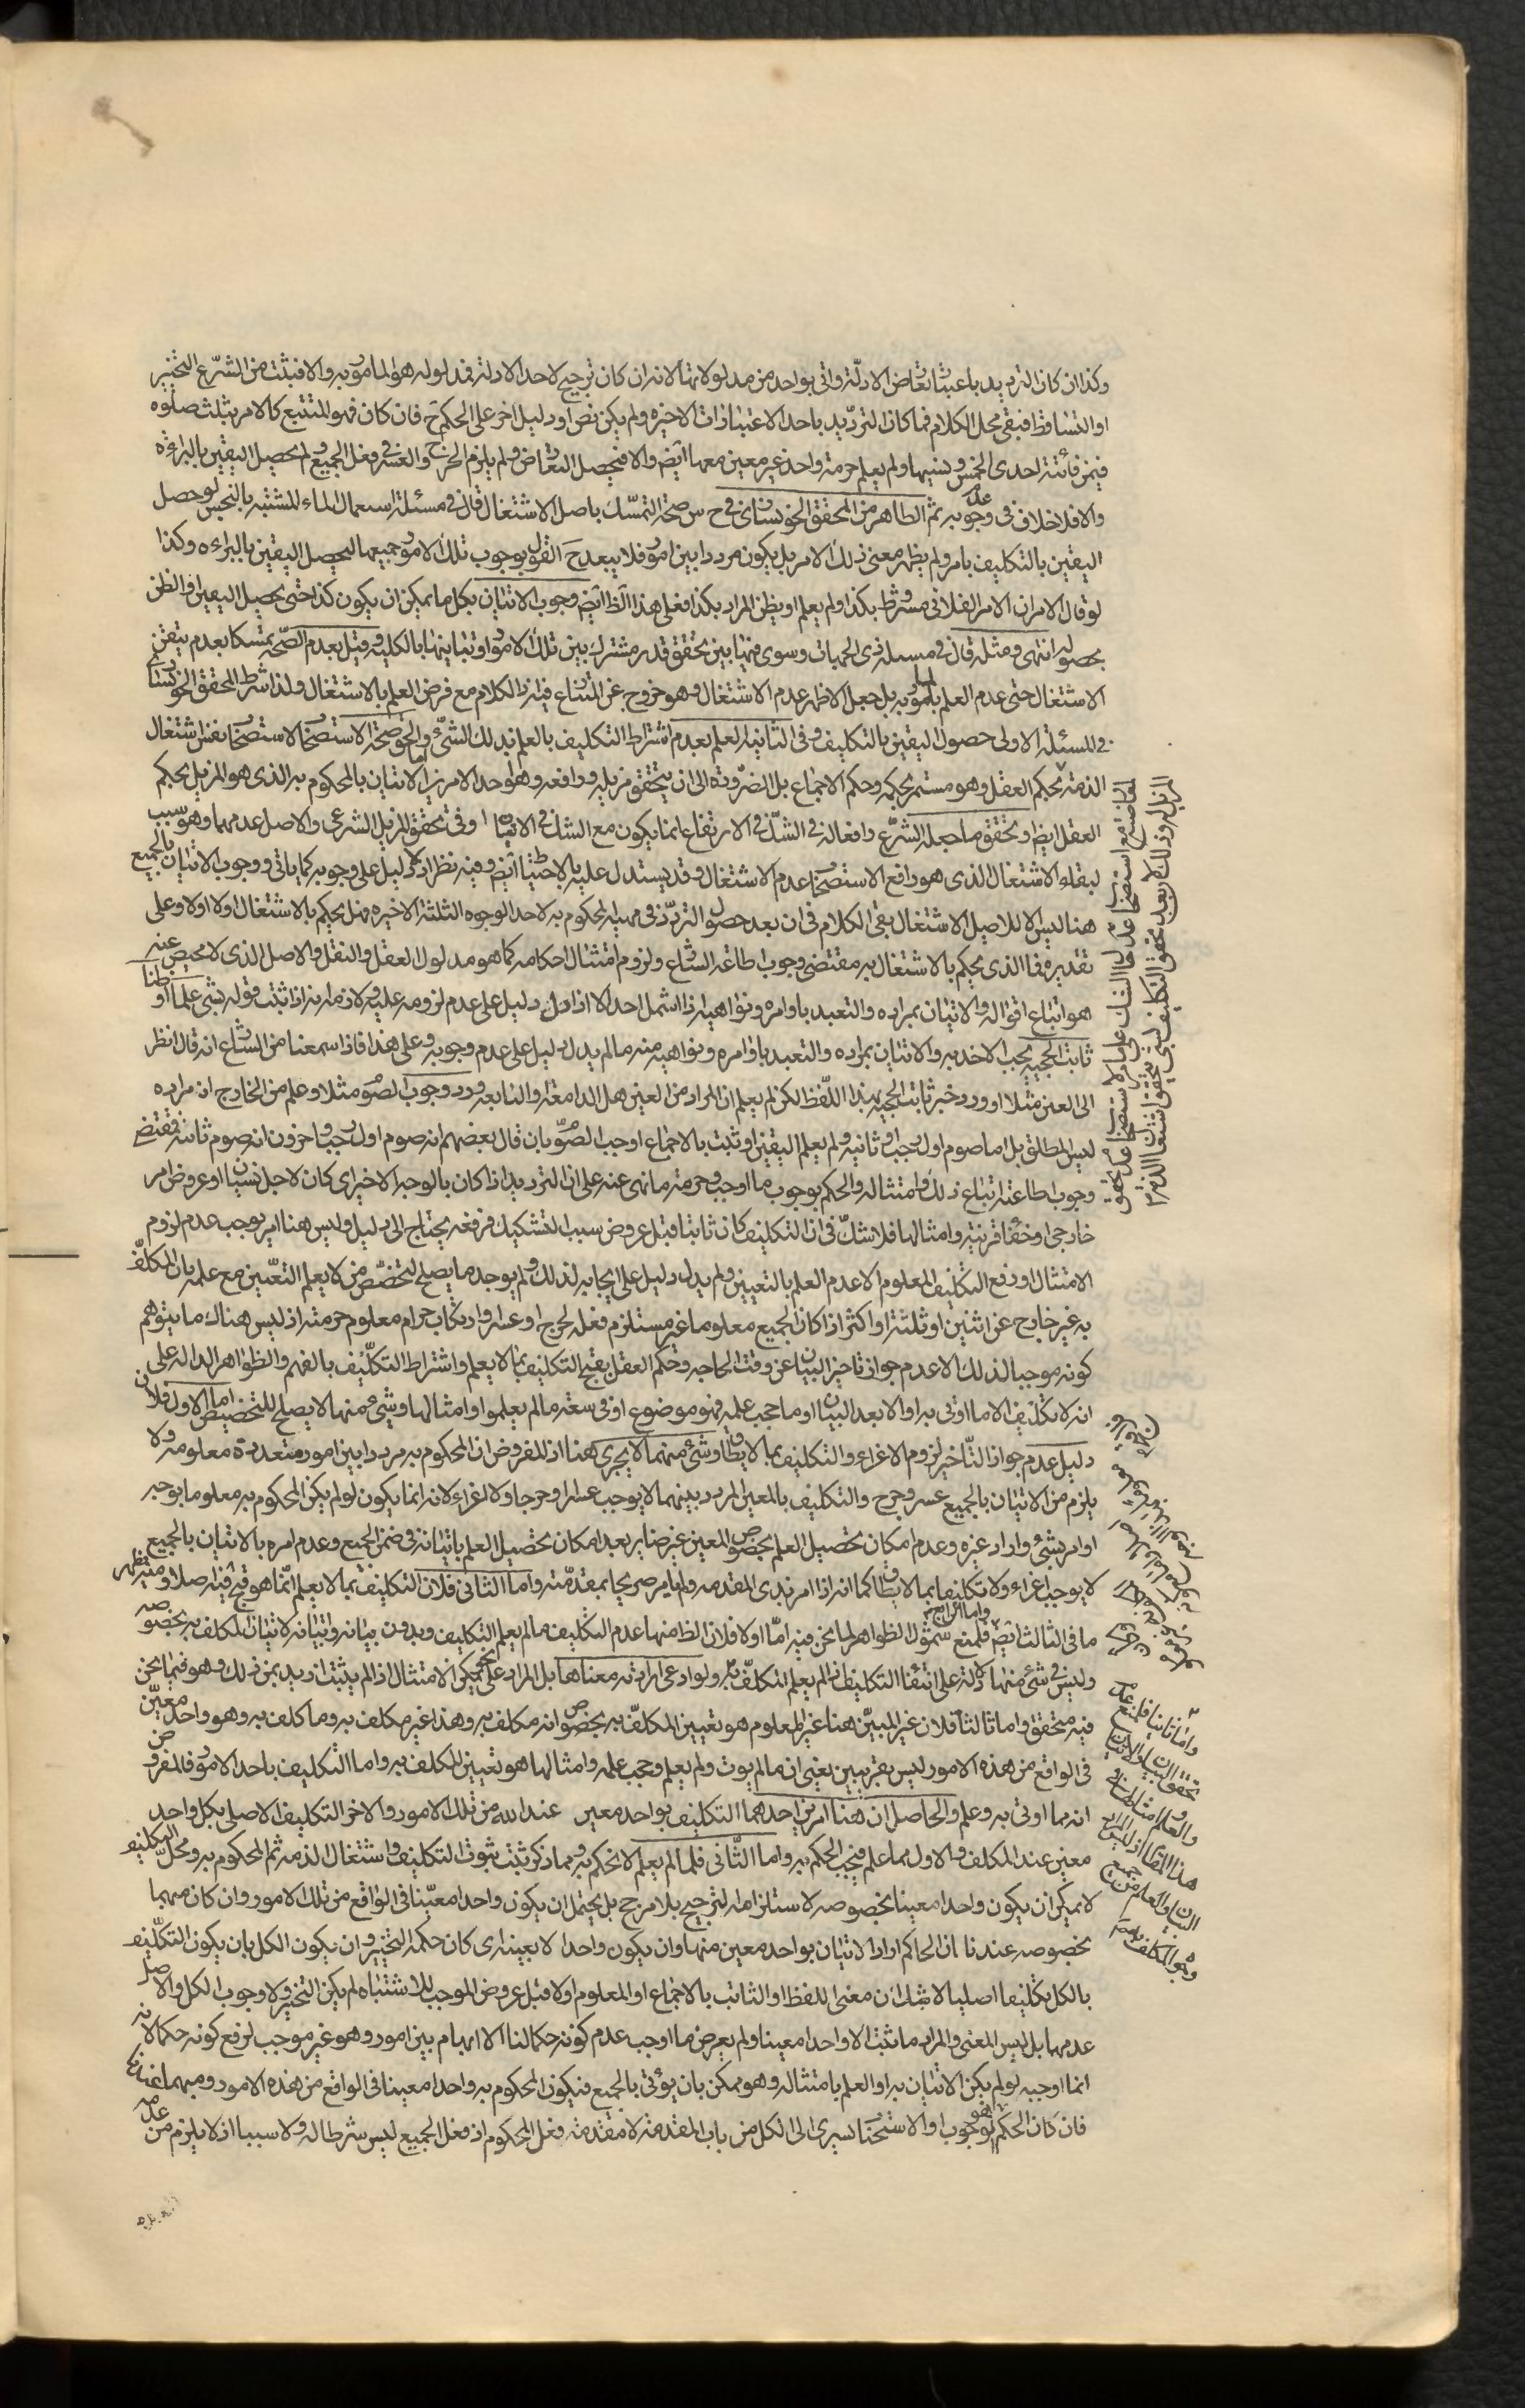 وكذا ان كان الترديد باعتبار تعارض الادلّة واتى بواحد من مدلولاتها لانه ان كان ترجيح لاحد الادلة فمدلوله هو المامور به والا فيثبت من الشرع التخيير
او التساقط فبقى محل الكلام فيما كان الترديد باحد الاعتبارات الاخيرة ولم يكن نص او دليل اخر على الحكم ح فان كان فهو المتبع كالامر بثلث صلوه
فيمن فائتة احدى الخمس ونسيها ولم يعلم حرمة واحد غير معين معها ايضا والا فيحصل التعارض ولم يلزم الحرج والعسر في فعل الجميع لتحصيل اليقين بالبراءة
والا فلا خلاف فى عدم وجوبه ثم الظاهر من المحقق الخونسارى فى ح س صحة التمسّك باصل الاشتغال قال فى مسئلة استعمال الماء المشتبه بالنجس لو حصل
اليقين بالتكليف بامر ولم يظهر معنى ذلك الامر بل يكون مرددا بين امور فلا يبعد ح القول بوجوب تلك الامور جميعها ليحصل اليقين بالبراءه وكذا
لو قال الامر ان الامر الفلانى مشروط بكذا ولم يعلم او يظن المراد بكذا فعلى هذا الظ ايض وجوب الاتيان بكل ما يمكن ان يكون كذا حتى يحصل اليقين او الظن
بحصوله انتهى ومثله قال فى مسئلة ذى الجهات وسوى فيها بين تحقق قدر مشترك بين تلك الامور او تباينها بالكليه وقيل بعدم الصحّه تمسكا بعدم تيقن
الاشتغال حتى عدم العلم بالمامور به بل جعل الاظهر عدم الاشتغال وهو خروج عن المتنازع فيه اذ الكلام مع فرض العلم بالاشتغال ولذا شرط المحقق الخونسارى
فى المسئلة الاولى حصول اليقين بالتكليف وفى الثانيه العلم بعدم اشتراط التكليف بالعلم بذلك الشئ والحق صحة الاستصحاب لاستصحاب نفس اشتغال
الذمة بحكم العقل وهو مستمر بحكمه وحكم الاجماع بل الضرورة الى ان يتحقق مزيله ورافعه وهو احد الامرين اما الاتيان بالمحكوم به الذى هو المزيل بحكم
العقل ايضا او تحقق ما جعله الشرع رافعا له فى الشك فى الارتفاع انما يكون مع الشك فى الاتيان او فى تحقق المزيل الشرعى والاصل عدمهما وهو سبب
لبقاء الاشتغال الذى هو رافع الاستصحاب عدم الاشتغال وقد يستدل عليه بالاحتياط ايضا وفيه نظر اذ لا دليل على وجوبه كما ياتى ووجوب الاتيان بالجميع
هنا ليس الا لاصل الاشتغال بقى الكلام فى ان بعد حصول التردّد فى مهية المحكوم به لاحد الوجوه الثلثة الاخيره هل يحكم بالاشتغال اولا او لا وعلى
تقديره فما الذى يحكم بالاشتغال به مقتضى وجوب اطاعة الشارع ولزوم امتثال احكامه كما هو مدلول العقل والنقل والاصل الذى لا محيص عنه
هو اتباع اقواله والاتيان بمراده والتعبد باوامره ونواهيه اذا شمل احدا الا اذا دل دليل على عدم لزومه عليه ولازمه انه اذا ثبت قوله بشئ علما او ظنا
ثابت الحجيه يجب الاخذ به والاتيان بمراده والتعبد باوامره ونواهيه منه ما لم يدل دليل على عدم وجوبه وعلى هذا فاذا سمعنا من الشارع انه قال انظر
الى العين مثلا او ورد خبر ثابت الحجيه بهذا اللفظ لكن لم يعلم ان المراد من العين هل الدامعة او النابعه او ورد وجوب الصوم مثلا وعلم من الخارج ان مراده
ليس المطلق بل اما صوم اول رجب او ثانيه ولم يعلم اليقين او ثبت بالاجماع اوجب الصوم بان قال بعضهم انه صوم اول رجب واخرون انه صوم ثانيه فمقتضى
وجوب اطاعته اتباع ذلك وامتثاله والحكم بوجوب ما اوجب وحرمة ما نهى عنه على ان الترديد اذا كان بالوجه الاخير اى كان لاجل نسيان او عروض امر
خارجى او خفاء قرينه وامثالها فلا شكّ فى ان التكليف كان ثابتا قبل عروض سبب التشكيك فرفعه يحتاج الى دليل وليس هنا امر يوجب عدم لزوم
الامتثال او رفع التكليف المعلوم الا عدم العلم بالتعيين ولم يدل دليل على ايجابه لذلك ولم يوجد ما يصلح لتخصّص من لا يعلم التعيين مع علمه بان المكلّف
به غير خارج عن اثنين او ثلثة او اكثر اذا كان الجميع معلوما غير مستلزم فعله لحرج او عسر او ارتكاب حرام معلوم حرمته اذ ليس هناك ما يتوهم
كونه موجبا لذلك الا عدم جواز تاخير البيان عن وقت الحاجه وحكم العقل بقبح التكليف بما لا يعلم واشتراط التكليف بالفهم والظواهر الداله على
انه لا تكليف الا ما اوتى به او الا بعد البيان او ما حجب علمه فهو موضوع او فى سعة ما لم يعلموا وامثالها وشئ منها لا يصلح للتخصيص اما الاول فلان
دليل عدم جواز التّاخير لزوم الاغراء والتكليف بما لا يطاق وشئ منهما لا يجرى هنا اذ المفروض ان المحكوم به مردد بين امور متعددة معلومه ولا
يلزم من الاتيان بالجميع عسر وحرج والتكليف بالمعين المردد بينهما لا يوجب عسرا وحرجا ولا اغراء لانه انما يكون لو لم يكن المحكوم به معلوما بوجه
او امر بشئ واراد غيره وعدم امكان تحصيل العلم بخصوص المعين غير ضاير بعد امكان تحصيل العلم باتيانه فى ضمن الجميع وعدم امره بالاتيان بالجميع
لا يوجب اغراء ولا تكليفا بما لا يطاق كما انه اذا امر بذى المقدمه ولم يامر صريحا بمقدّمته واما الثانى فلان التكليف بما لا يعلم انما هو قبح فيه صلا ومنه يظهر
ما فى الثالث ايض واما الرابع فلمنع شمول الظواهر لما نحن فيه امّا اولا فلان الظ منها عدم التكليف ما لم يعلم التكليف وبدون بيانه واتيانه لا تيان المكلف به بخصوصه
وليس فى شئ منها دلالة على انتفاء التكليف اذا لم يعلم المكلّف به ولو ادعى ارادته معناها بل المراد علم يمكن الامتثال اذ لم يثبت ازيد من ذلك وهو فيما نحن
فيه متحقق واما ثالثا فلان غير المبيّن هنا غير المعلوم هو تعيين المكلّف به بخصوص انه مكلف به وهذا غير مكلف به وما كلف به وهو واحد معيّن
فى الواقع من هذه الامور ليس بغير مبين يعنى ان ما لم يوت ولم يعلم وحجب علمه وامثالها هو تعيين المكلف به واما التكليف باحد الامور فالمفروض
انه مما اوتى به وعلم والحاصل ان هنا امرين احدهما التكليف بواحد معين عند الله من تلك الامور والاخر التكليف الاصلى بكل واحد
معين عند المكلف والاول مما علم فيجب الحكم به واما الثّانى فلما لم يعلم لا نحكم به ومما ذكر ثبت ثبوت التكليف واشتغال الذمه ثم المحكوم به ومحل التكليف
لا يمكن ان يكون واحدا معينا بخصوصه لاستلزامه الترجيح بلا مرجح بل يحتمل ان يكون واحدا معيّنا فى الواقع من تلك الامور وان كان مبهما
بخصوصه عندنا ان الحاكم اراد الاتيان بواحد معين منها وان يكون واحدا لا بعينه اى كان حكمه التخيير وان يكون الكل بان يكون التكليف
بالكل تكليفا اصليا لا شك ان معنى اللفظ او الثابت بالاجماع او المعلوم اولا قبل عروض الموجب للاشتباه لم يكن التخيير ولا وجوب الكل والاصل
عدمهما بل ليس المعنى والمراد ما ثبت الا واحدا معينا ولم يعرض ما اوجب عدم كونه حكما لنا الا الابهام بين امور وهو غير موجب لرفع كونه حكما لانه
انما اوجبه لو لم يكن الاتيان به او العلم بامتثاله وهو ممكن بان يؤتى بالجميع فيكون المحكوم به واحدا معينا فى الواقع من هذه الامور ومبهما عندنا
فان كان الحكم هو الوجوب او الاستحباب يسرى الى الكل من باب المقدمة لا مقدمة فعل المحكوم اذ فعل الجميع ليس شرطا له ولا سببا اذ لا يلزم من عدمه
المزيل وذلك لا يعد تحقق التكليف ليتبين تحقق اشتغال الذمه
واما ثانيا فلمنع عدم
تحقق البيان والاتيان
والعلم وامثالها فى
هذا المقام اذ ليس المراد
البيان والعلم من جميع